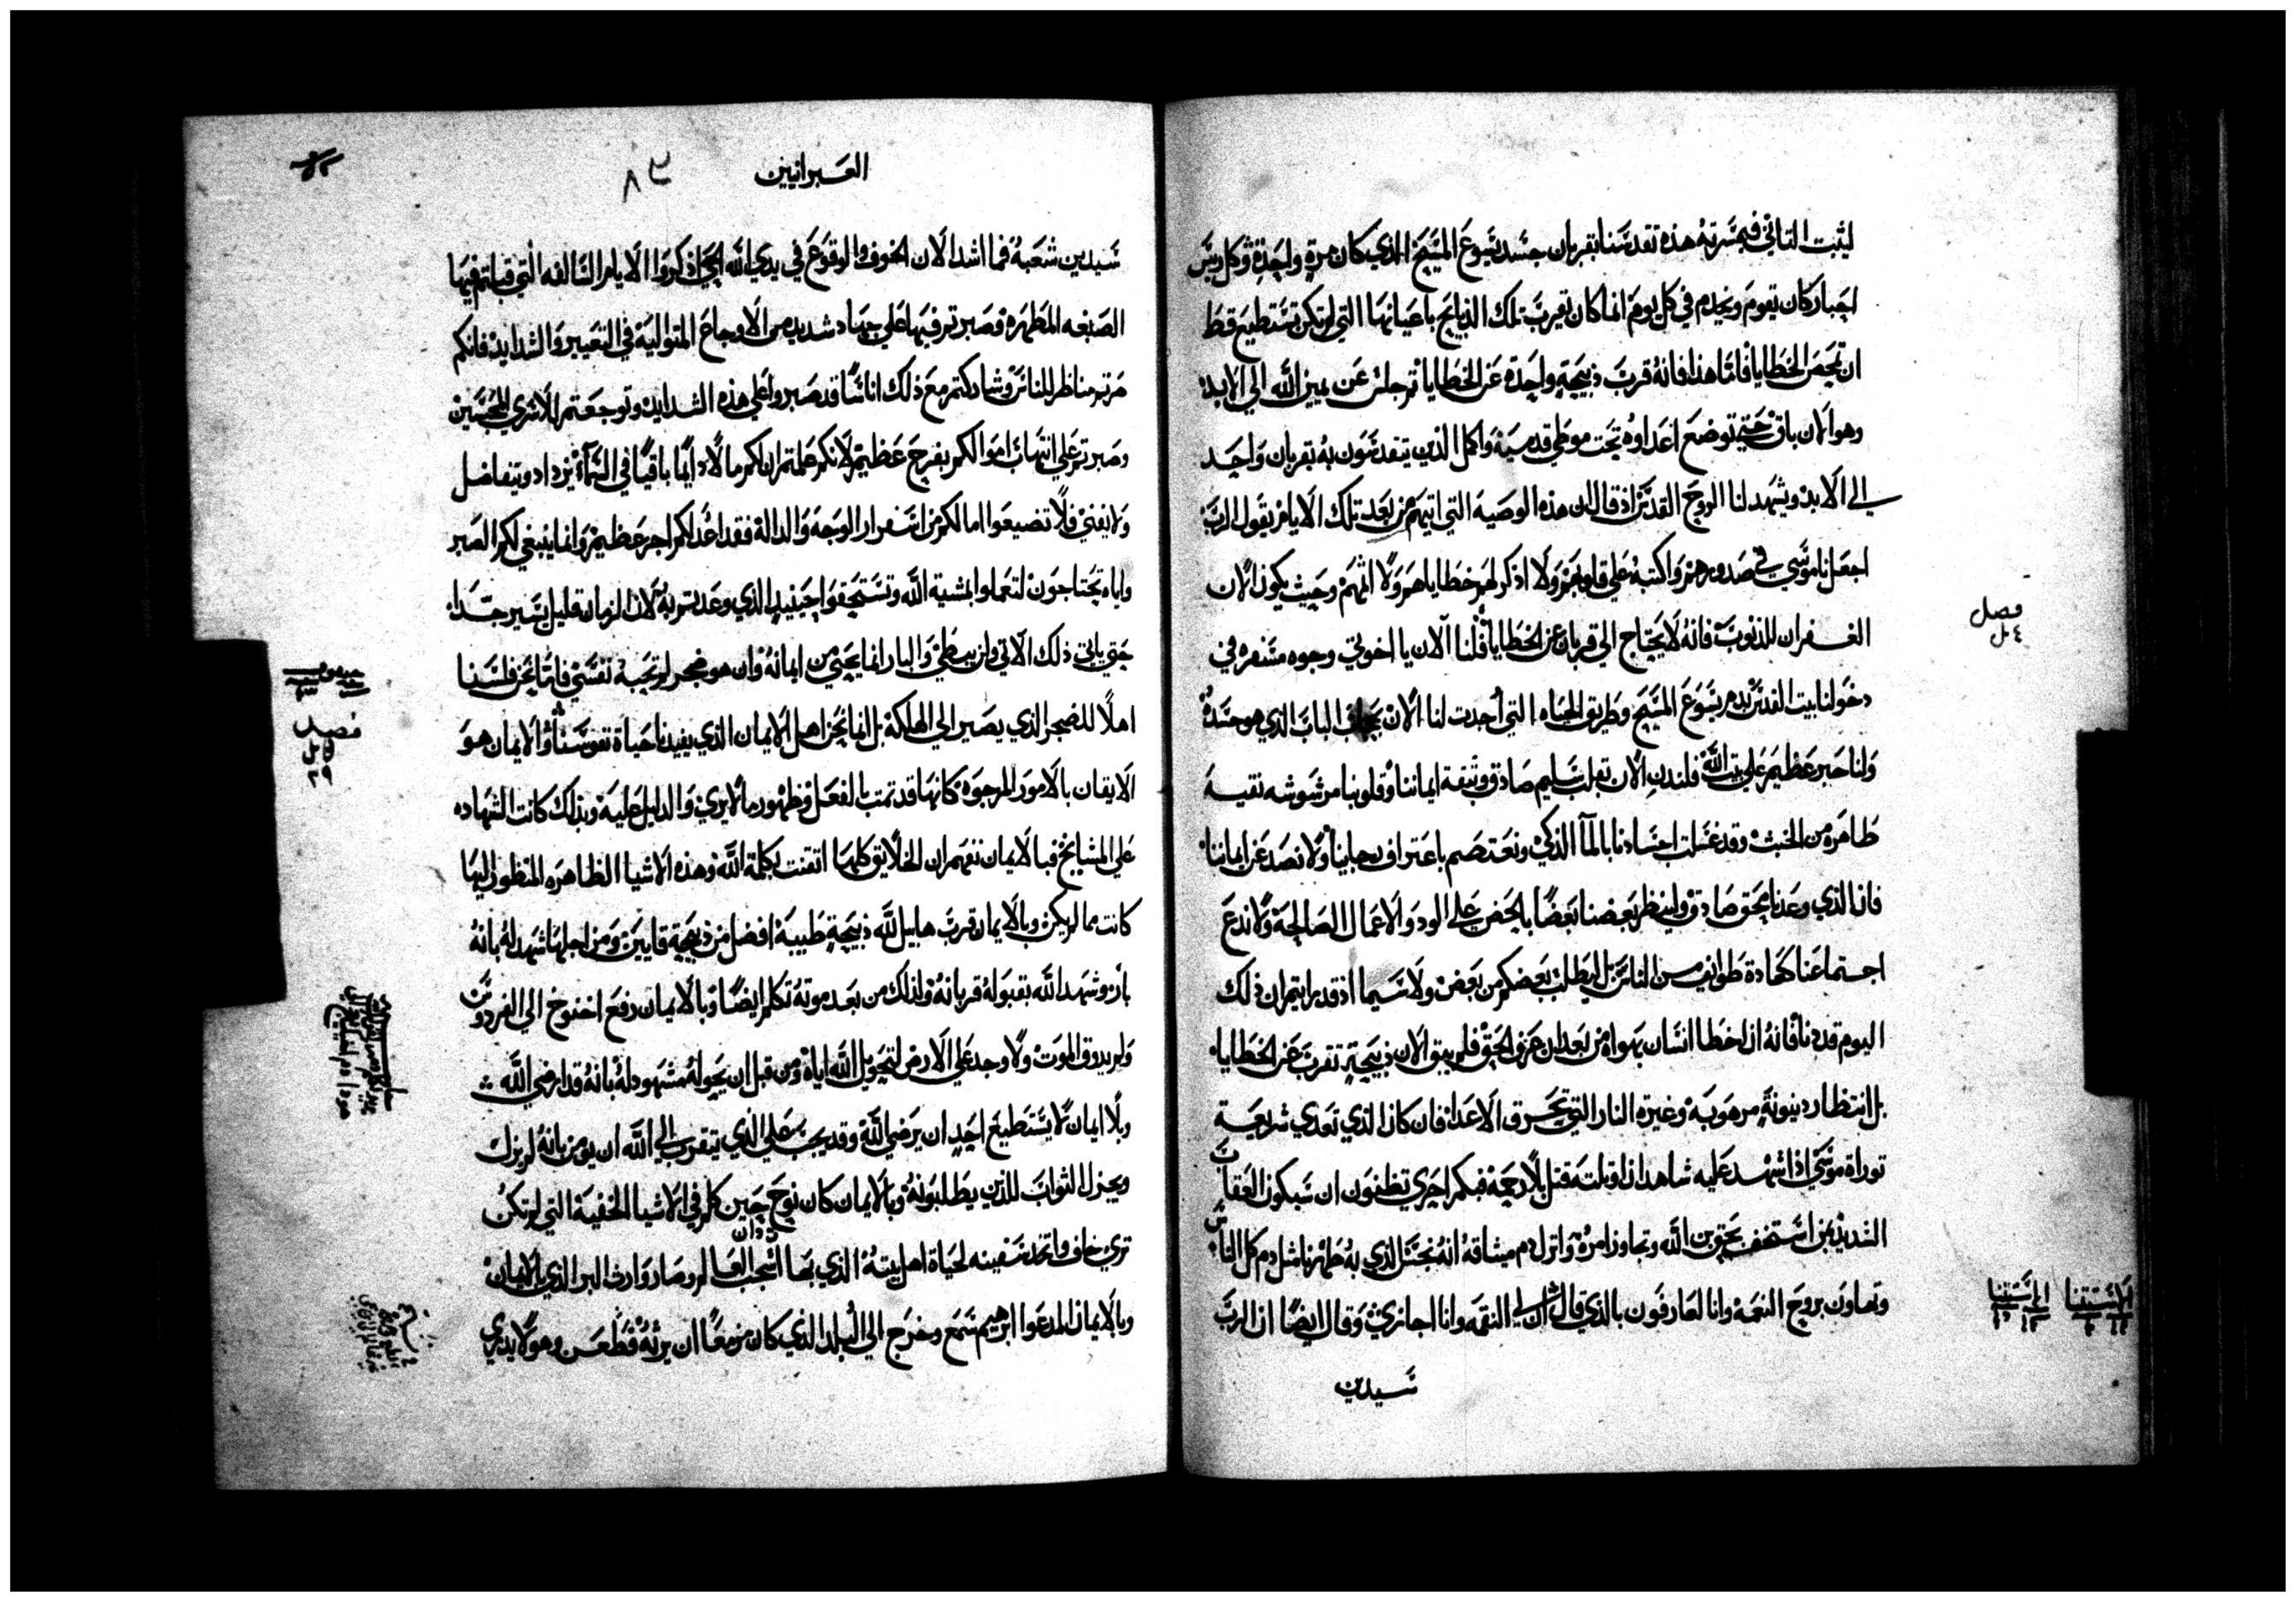 ليثبت الثاني فبمسرته هذه تقدسنا بقربان جسد يسوع المسيح الذي كان مرة واحدة وكل رييس
احبار كان يقوم ويخدم في كل يوم انما كان يقرب تلك الذبايح باعيانها التي لم تكن تستطيع قط
ان تمحص الخطايا فاما هذا فانه قرب ذبيحة واحدة عن الخطايا ثم جلس عن يمين الله الي الابد
وهو الان باق حتي توضع اعداوه تحت موطي قدميه واكمل الذين يتقدسون به بقربان واحد
الي الابد ويشهد لنا الروح القدس اذ قال ان هذه الوصية التي اتيهم من بعد تلك الايام يقول الرب
اجعل ناموسي في صدورهم واكتبه علي قلوبهم ولا اذكر لهم خطاياهم ولا اثمهم وحيث يكون الان
الغفران للذنوب فانه لا يحتاج الي قربان عن الخطايا فلنا الان يا اخوتي وجوه مسفره في
فصل
دخولنا بيت القدس بدم يسوع المسيح وطريق الحياه التي احدثت لنا الان بحجاب الباب الذي هو جسده
ولنا حبر عظيم علي بيت الله فلندن الان بقلب سليم صادق وبثقة ايماننا وقلوبنا مرشوشه نقيه
طاهره من الخبث وقد غسلت اجسادنا بالما الذكي ونعتصم باعتراف رجاينا ولا نصد عن ايماننا
فان الذي وعدنا بحق صادق ولينظر بعضنا بعضا بالحض علي الود والاعمال الصالحة ولا ندع
اجتماعنا كعادة طوايف من الناس بل ليطلب بعضكم من بعض ولا سيما اذ قد رايتم ان ذلك
اليوم قد دنا فانه ان اخطا انسان بهواه من بعد ان عرف الحق فلم يبق الان ذبيحة تقرب عن الخطايا
بل انتظار دينونة مرهوبة وغيرة النار التي تحرق الاعدا فان كان الذي تعدي شريعة
توراة موسي اذا شهد عليه شاهدان او ثلثة قتل بلا رحمة فبكم احري تظنون ان سيكون العقاب
الشديد بمن استخف بحق بن الله وتجاوز امره وانزل دم ميثاقه انه نجس الذي به طهرنا مثل دم كل الناس
وتهاون بروح النعمة وانا لعارفون بالذي قال ان لي النقمه وانا اجازي وقال ايضا ان الرب
سيدين
العبرانيين
٨٣
سيدين شعبه فما اشد الان الخوف والوقوع في يدي الله الحي اذكروا الايام السالفه التي قبلتم فيها
الصبغه المطهرة وصبرتم فيها علي جهاد شديد من الاوجاع المتوالية في التعيير والشدايد فانكم
صرتم مناظر للناس وشاركتم مع ذلك اناسا قد صبروا علي هذه الشدايد وتوجعتم للاسري المحبسين
وصبرتم علي انتهاب اموالكم بفرح عظيم لانكم علمتم ان لكم مالا دايما باقيا في السما يزداد ويتفاضل
ولا يفني فلا تضيعوا ما لكم من اسفرار الوجه والدالة فقد اعد لكم اجر عظيم وانما ينبغي لكم الصبر
واياه تحتاجون لتعملوا بمشية الله وتستحقوا حينيد الذي وعدتم به لان الزمان قليل يسير جدا
حتي ياتي ذلك الاتي ولن يبطي والبار انما يحيي من ايمانه وان هو ضجر لم تحبه نفسي فاما نحن فلسنا
اهلا للضجر الذي يصير الي الهلكة بل انما نحن اهل الايمان الذي يفيدنا حياة نفوسنا والايمان هو
فصل
الايقان بالامور المرجوة كانها قد تمت بالفعل وظهور ما لا يري والدليل عليه وبذلك كانت الشهاده
علي المشايخ فبالايمان نفهم ان الخلايق كلها اتقنت بكلمة الله وهذه الاشيا الظاهره المنظور اليها
كانت مما لم يكن وبالايمان قرب هابيل لله ذبيحة طيبة افضل من ذبيحة قايين ومن اجلها شهد له بانه
بار وشهد الله بقبوله قربانه ولذلك من بعد موته تكلم ايضا وبالايمان رفع اخنوخ الي الفردوس
ولم يدوق الموت ولا وجد علي الارض لتحويل الله اياه ومن قبل ان يحوله مشهود له بانه قد ارضي الله
وبلا ايمان لا يستطيع احد ان يرضي الله وقد يجب علي الذي يتقرب الي الله ان يومن بانه لم يزل
ويجزل الثواب للذين يطلبونه وبالايمان كان نوح حين كلم في الاشيا الخفية التي لم تكن
تري خاف واتخد سفينه لحياة اهل بيته الذي بها اشجب العالم وصار وارث البر الذي بالايمان
وبالايمان المدعوا ابرهيم سمع وخرج الي البلد الذي كان مزمعا ان يرثه فظعن وهو لا يدري